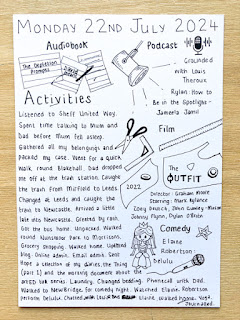 MONDAY 22ND JULY 2024
Audiobook
The Depletion Prompts
Podcast
Grounded
with Louis
Theroux
Rylan: How to
Be in the Spotlight -
Jameela Jamil
Activities
Listened to Sheff United Way.
Spent time talking to Mum and
Dad before Mum fell asleep.
Gathered all my belongings and
packed my case. Went for a quick
walk round Blakehall. Dad dropped
me off at the train station. Caught
the train from Mirfield to Leeds.
Changed at Leeds and caught the
train to Newcastle. Arrived a little
late into Newcastle. Greeted by rain.
Got the bus home. Unpacked. Walked
round Nunsmoor Park to Morrisons.
Grocery shopping. Walked home. Updated
blog. Online admin. Email admin. Sent
Hope a selection of my diaries, The Thing
(part 1) and the working document about the
artED talk series. Laundry. Changed bedding. Phonecall with Dad.
Walked to NewBridge for comedy night. Watched Elaine Robertson
perform Delulu. Chatted with
Elaine. Walked home. Yoga.
Journalled.
Film
The
OUTFIT
2022
Director: Graham Moore
Starring: Mark Rylance
Zoey Deutch, Nikki Amuka-Bird
Johnny Flynn, Dylan O'Brien
Comedy
Elaine
Robertson:
Delulu